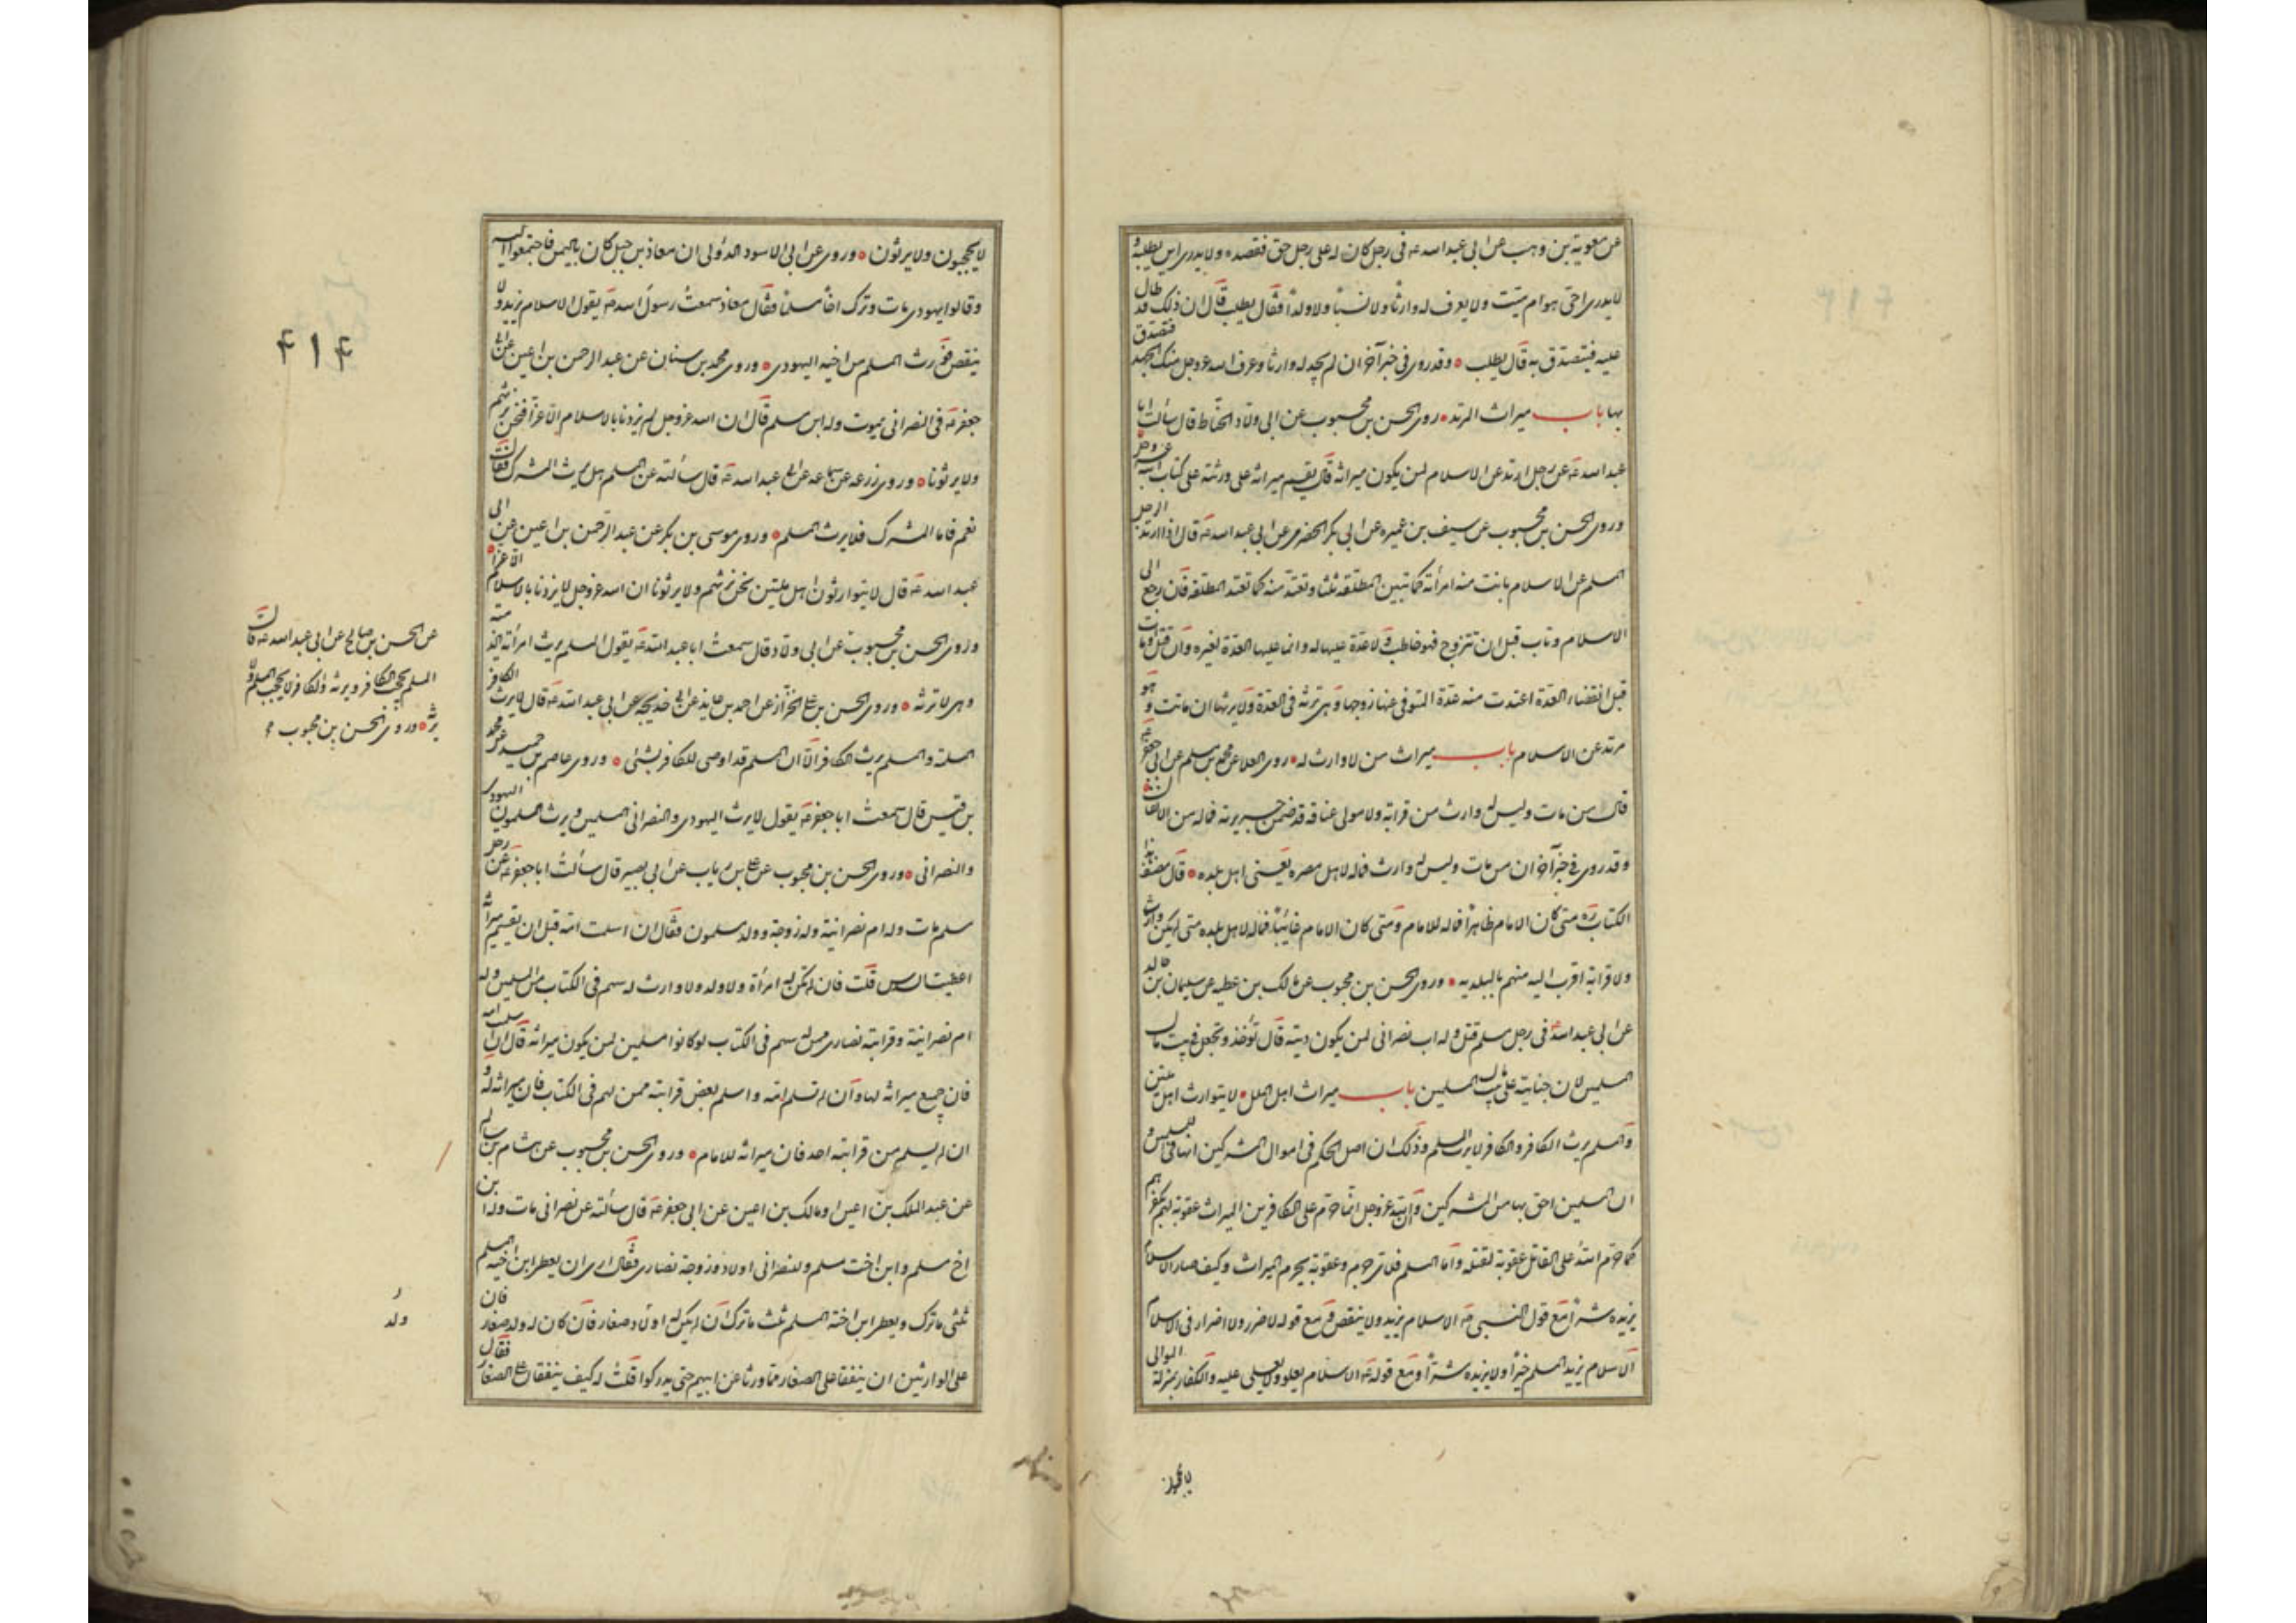 عن معوية بن وهب عن ابى عبد الله ع فى رجل كان له على رجل حق ففقده ولا يدرى اين يطلبه
لا يدرى احىّ هو ام ميّت ولا يعرف له وارثاً ولا نسباً ولا ولداً فقال يطلب قال ان ذلك قد طال
عليه فيتصدق به قال يطلب وقد روى فى خبر آخر ان لم يجد له وارثا وعرف الله عز وجل منك الجهد فتصدق
بها باب ميراث المرتد روى الحسن بن محبوب عن ابى ولاد الحنّاط قال سألت ابا
عبد الله ع عن رجل ارتد عن الاسلام لمن يكون ميراثه قال يقسم ميراثه على ورثته على كتاب الله عز وجل
وروى الحسن بن محبوب عن سيف بن عميره عن ابى بكر الحضرمى عن ابى عبد الله ع قال اذا ارتد الرجل
المسلم عن الاسلام بانت منه امرأته كما تبين المطلقه ثلثا وتعتد منه كما تعتد المطلقه فان رجع الى
الاسلام وتاب قبل ان تتزوج فهو خاطب ولا عدة عليها له وانما عليها العدة لغيره وان قتل او مات
قبل انقضاء العدة اعتدت منه عدة المتوفى عنها زوجها وهى ترثه فى العدة ولا يرثها ان ماتت وهو
مرتد عن الاسلام باب ميراث من لا وارث له روى العلا عن محمد بن مسلم عن ابى جعفر ع
قال من مات وليس له وارث من قرابة ولا مولى عتاقه قد ضمن جريرته فماله من الانفال
وقد روى فى خبر آخر ان من مات وليس له وارث فماله لاهل مصره يعنى اهل بلده قال مصنف هذا
الكتاب ره متى كان الامام ظاهراً فماله للامام ومتى كان الامام غائباً فماله لاهل بلده متى لم يكن له وارث
ولا قرابة اقرب اليه منهم بالبلديه وروى الحسن بن محبوب عن مالك بن عطيه عن سليمان بن خالد
عن ابى عبد الله ع فى رجل مسلم قتل وله اب نصرانى لمن يكون ديته قال تؤخذ وتجعل فى بيت مال
المسلمين لان جنايته على بيت مال المسلمين باب ميراث اهل الملل لا يتوارث اهل ملتين
والمسلم يرث الكافر والكافر لا يرث المسلم وذلك ان اصل الحكم فى اموال المشركين انها فىء للمسلمين و
ان المسلمين احق بها من المشركين وان الله عز وجل انما حرم على الكافرين الميراث عقوبة لهم بكفرهم
كما حرم الله على القاتل عقوبة لقتله واما المسلم فلاى جرم وعقوبة يحرم الميراث وكيف صار الاسلام
يزيده شراً مع قول النبى ص الاسلام يزيد ولا ينقص ومع قوله لا ضرر ولا اضرار فى الاسلام
الاسلام يزيد المسلم خيراً ولا يزيده شراً ومع قوله ع الاسلام يعلو ولا يعلى عليه والكفار بمنزلة الموالى
لا يحجبون
لا يحجبون ولا يرثون وروى عن ابى الاسود الدؤلى ان معاذ بن جبل كان باليمن فاجتمعوا اليه
وقالوا يهودى مات وترك اخاً مسلماً فقال معاذ سمعت رسول الله ص يقول الاسلام يزيد ولا
ينقص فورث المسلم من اخيه اليهودى وروى محمد بن سنان عن عبد الرحمن بن اعين عن ابى
جعفر ع فى النصرانى يموت وله ابن مسلم قال ان الله عز وجل لم يزدنا بالاسلام الا عزّاً فنحن نرثهم
ولا يرثونا وروى زرعه عن سماعه عن ابى عبد الله ع قال سألته عن المسلم هل يرث المشرك فقال
نعم فاما المشرك فلا يرث المسلم وروى موسى بن بكر عن عبد الرحمن بن اعين عن ابى
عبد الله ع قال لا يتوارثون اهل ملتين نحن نرثهم ولا يرثونا ان الله عز وجل لم يزدنا بالاسلام الا عزا
وروى الحسن بن محبوب عن ابى ولاد قال سمعت ابا عبد الله ع يقول المسلم يرث امرأته الذمية
وهى لا ترثه وروى الحسن بن على الخزّاز عن احمد بن عايذ عن ابى خديجه عن ابى عبد الله ع قال لا يرث الكافر
المسلم والمسلم يرث الكافر الا ان المسلم قد اوصى للكافر بشئ وروى عاصم بن حميد عن محمد
بن قيس قال سمعت ابا جعفر ع يقول لا يرث اليهودى والنصرانى المسلمين ويرث المسلمون اليهود
والنصرانى وروى الحسن بن محبوب عن على بن رياب عن ابى بصير قال سألت ابا جعفر ع عن رجل
مسلم مات وله ام نصرانية وله زوجة وولد مسلمون فقال ان اسلمت امه قبل ان تقسيم ميراثه
اعطيت السدس قلت فان لم تكن له امرأة ولا ولد ولا وارث له سهم فى الكتاب من المسلمين وله
ام نصرانية وقرابته نصارى ممن له سهم فى الكتاب لو كانوا مسلمين لمن يكون ميراثه قال ان اسلمت امه
فان جميع ميراثه لها وان لم تسلم امه واسلم بعض قرابته ممن لهم فى الكتاب فان ميراثه له و
ان لم يسلم من قرابته احد فان ميراثه للامام وروى الحسن بن محبوب عن هشام بن سالم
عن عبد الملك بن اعين او مالك بن اعين عن ابى جعفر ع قال سألته عن نصرانى مات وله ابن
اخ مسلم وابن اخت مسلم وللنصرانى اولاد وزوجة نصارى فقال ارى ان يعطى ابن اخيه المسلم
ثلثى ما ترك ويعطى ابن اخته المسلم ثلث ما ترك ان لم يكن له اولاد صغار فان كان له ولد صغار فان
على الوارثين ان ينفقا على الصغار مما ورثا عن ابيهم حتى يدركوا قلت له كيف ينفقان على الصغار فقال
۴۱۴
عن الحسن بن صالح عن ابى عبد الله ع قال
المسلم يحجب الكافر ويرثه والكافر لا يحجب المسلم ولا
يرثه وروى الحسن بن محبوب
ولد